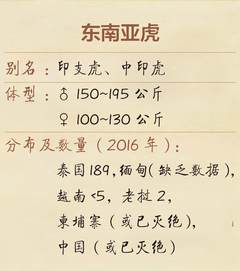 东南亚虎
别名：印支虎、中印虎
体型：♂ 150~195 公斤
♀ 100~130 公斤
分布及数量（2016 年）：
泰国189，缅甸(缺乏数据)，
越南<5，老挝 2，
柬埔寨（或已灭绝)，
中国（或已灭绝）